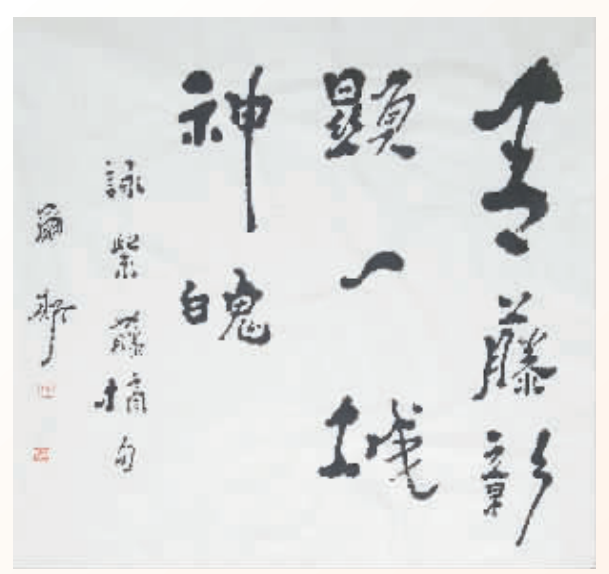 藤彰
顯一城
神魄
詠紫藤摘句